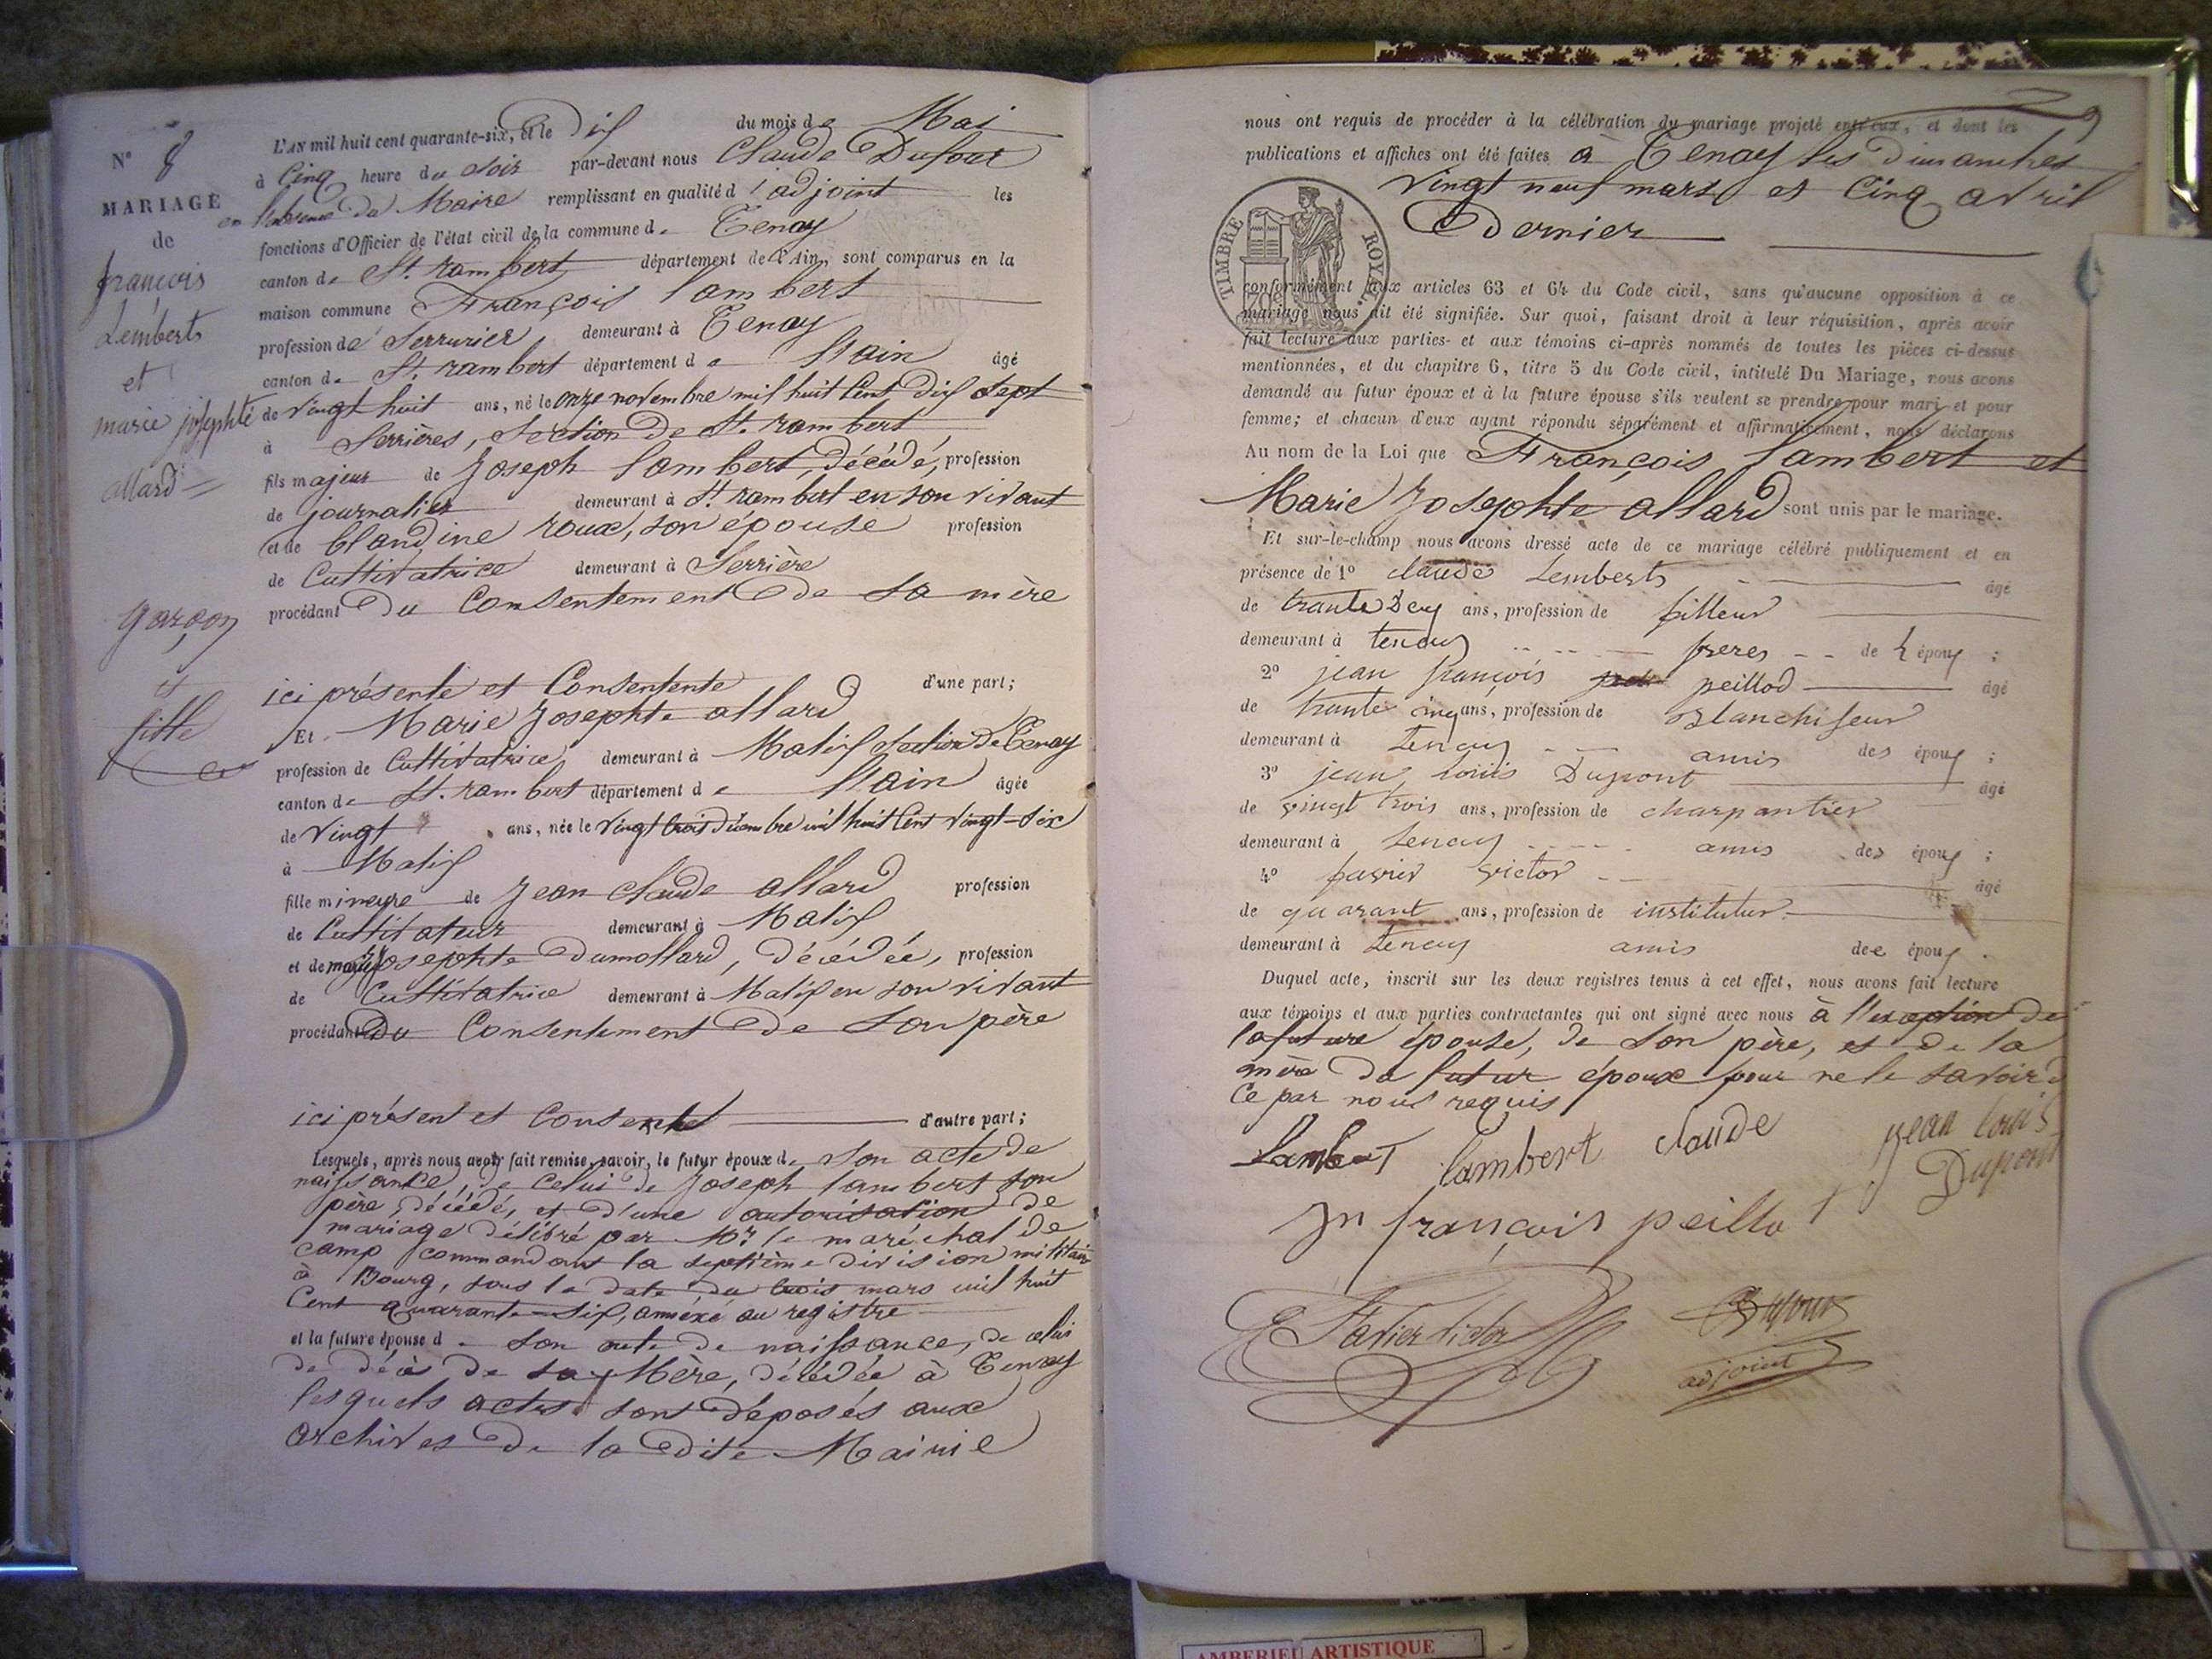 N° 8
MARIAGE
de
françois
Lemberts
et
marie josephte
allard
garçon
et
fille
L'AN mil huit cent quarante-six, et le Dix du mois de Mai
à Cinq heure du soir par-devant nous Claude Dufour
en l'absence du Maire remplissant en qualité d'adjoint les
fonctions d'Officier de l'état civil de la commune de Tenay
canton de St. rambert département de l'Ain, sont comparus en la
maison commune François lambert
profession de Serrurier demeurant à Tenay
canton de St. rambert département de l'ain âgé
de vingt huit ans, né le onze novembre mil huit Cent dix sept
à Serrières, Section De St. rambert
fils majeur de Joseph lambert, décédé, profession
de journalier demeurant à St. rambert en son vivant
et de blandine roux, son épouse profession
de Cultivatrice demeurant à Serrière
procédant Du Consentement De sa mère
ici présente et Consentente d'une part;
Et Marie Josephte allard
profession de Cultivatrice demeurant à Matix section De Tenay
canton de St. rambert département de l'ain âgée
de vingt ans, née le vingt trois Décembre mil huit Cent vingt-six
à Matix
fille mineure de Jean claude allard profession
de Cultivateur demeurant à Matix
et de marie josephte Dumollard, Décédée, profession
de Cultivatrice demeurant à Matix en son vivant
procédant Du Consentement De son père
ici présent et Consentent d'autre part;
Lesquels, après nous avoir fait remise, savoir, le futur époux de son acte de
naissance, de Celui de Joseph lambert son
père, décédé, et d'une autorisation de
mariage délivré par Mr. le maréchal de
camp commandant la septième division militaire
à Bourg, sous la date du trois mars mil huit
Cent quarante-six, annéxé au registre
et la future épouse de son acte de naissance, de celui
de décès de sa Mère, décédée à Tenay
lesquels actes sont déposés aux
archives De la Dite Mairie
nous ont requis de procéder à la célébration du mariage projeté entr'eux, et dont les
publications et affiches ont été faites à Tenay les Dimanches
vingt neuf mars et Cinq avril
Dernier
TIMBRE ROYAL
conformément aux articles 63 et 64 du Code civil, sans qu'aucune opposition à ce
mariage nous ait été signifiée. Sur quoi, faisant droit à leur réquisition, après avoir
fait lecture aux parties et aux témoins ci-après nommés de toutes les pièces ci-dessus
mentionnées, et du chapitre 6, titre 5 du Code civil, intitulé Du Mariage, nous avons
demandé au futur époux et à la future épouse s'ils veulent se prendre pour mari et pour
femme; et chacun d'eux ayant répondu séparément et affirmativement, nous déclarons
Au nom de la Loi que François lambert et
Marie Josephte allard sont unis par le mariage.
Et sur-le-champ nous avons dressé acte de ce mariage célébré publiquement et en
présence de 1° claude Lemberts âgé
de trante Deux ans, profession de filleur
demeurant à tenay freres de l époux;
2° jean françois peillod âgé
de trante cinq ans, profession de Blanchiseur
demeurant à tenay amis des époux;
3° jean louis Dupont âgé
de vingt trois ans, profession de charpantier
demeurant à tenay amis des époux;
4° favrier victor âgé
de quarant ans, profession de institutur
demeurant à tenay amis des époux.
Duquel acte, inscrit sur les deux registres tenus à cet effet, nous avons fait lecture
aux témoins et aux parties contractantes qui ont signé avec nous à l'exception De
la future épouse, de son père, et de la
mère du futur époux pour ne le savoir
Ce par nous requis
Lambert lambert claude jean louis
Dupont
Jn françois peillot
Favier victor Dufour
adjoint
AMBERIEU ARTISTIQUE